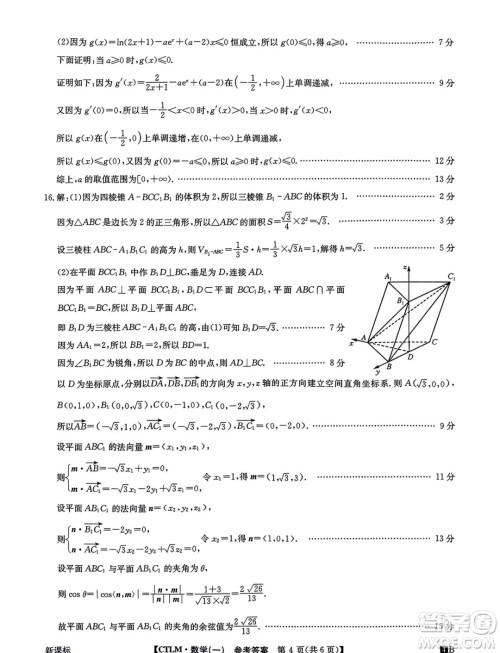 (2)因为 g(x)=ln(2x+1)-aeˣ(x)≤0 恒成立,所以 g(0)≤0,得 a≥0. 7 分
下面证明:当 a≥0 时,g(x)≤0.
证明如下:因为 g′(x)=2/(2x+1)-aeˣ+a-2 在(-1/2,+∞)上单调递减, 9 分
又因为 g′(0)=0,所以当 -1/2<x<0 时,g′(x)>0,当 x>0 时,g′(x)<0,
所以 g(x)在(-1/2,0)上单调递增,在(0,+∞)上单调递减,
所以 g(x)≤g(0)≤0. 12 分
综上,a 的取值范围为[0,+∞). 13 分
16.解:(1)因为四棱锥 A-BCC₁B₁ 的体积为 2,所以三棱锥 B₁-ABC 的体积为 1.
因为△ABC 是边长为 2 的正三角形,所以△ABC 的面积 S=√3/4×2²=√3.
设三棱柱 ABC-A₁B₁C₁ 的高为 h,则 V_{B₁-ABC}=1/3 S·h=1/3×√3×h=1,得 h=√3.
(2)在平面 BCC₁B₁ 中作 B₁D⊥BC,垂足为 D,连接 AD.
因为平面 ABC⊥平面 BCC₁B₁,B₁D⊂平面 BCC₁B₁,平面 ABC∩平面
BCC₁B₁=BC,所以 B₁D⊥平面 ABC,
即 B₁D 为三棱柱 ABC-A₁B₁C₁ 的高,所以 B₁D=√3. 7 分
又 AA₁=2,所以 BB₁=2,所以 BD=1.
因为∠B₁BC 为锐角,所以 D 为 BC 的中点,则 AD⊥BC. 8 分
以 D 为坐标原点,DA,DB,DB₁的方向分别为 x,y,z 轴的正方向建立空间直角坐标系.则 A(√3,0,0),
B(0,1,0),B₁(0,0,√3),C₁(0,-2,√3).
所以AB=(-√3,1,0),AC₁=(-√3,-2,√3),B₁C₁=(0,-2,0). 9 分
设平面 ABC₁ 的法向量为 m=(x₁,y₁,z₁),
则{m·AB=-√3x₁+y₁=0, m·AC₁=-√3x₁-2y₁+√3z₁=0, 令 x₁=1,得 m=(1,√3,3). 11 分
设平面 AB₁C₁ 的法向量为 n=(x₂,y₂,z₂),
则{n·B₁C₁=-2y₂=0, n·AC₁=-√3x₂-2y₂+√3z₂=0, 令 x₂=1,得 n=(1,0,1). 13 分
设平面 ABC₁ 与平面 AB₁C₁ 的夹角为 θ,
则 cos θ=|cos⟨n,m⟩|=|n·m|/(|n||m|)=(1+3)/(√13×√2)=2√26/13.
故平面 ABC₁ 与平面 AB₁C₁ 的夹角的余弦值为2√26/13. 15 分
A₁
C₁
z
B₁
A
x
B
y
D
C
新课标
【CTLM·数学(一) 参考答案 第 4 页(共 6 页)】